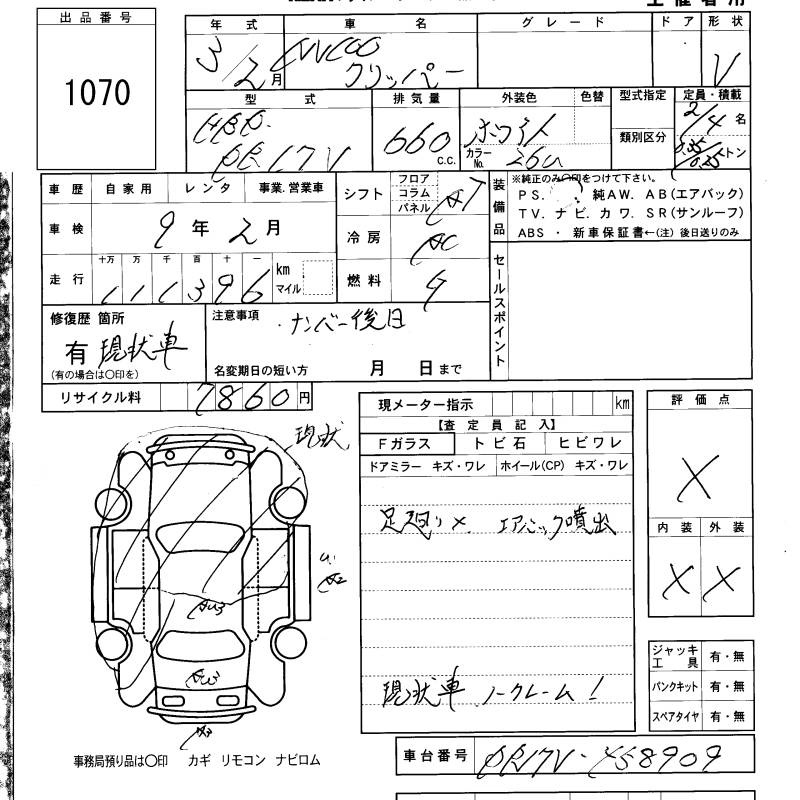 出品番号
1070
年式 車名 グレード ドア 形状
3/2月 NV100 クリッパー V
型式 排気量 外装色 色替 型式指定 定員・積載
DR17V 660 C.C. ホワイト カラーNo. 26U 類別区分 2/4名
0.35/0.25トン
車歴 自家用 レンタ 事業.営業車
車検 9年2月
走行 十万 万 千 百 十 一
111396 km マイル
シフト フロア コラム パネル AT
冷房 AC
燃料 G
装備品
※純正のみ○印をつけて下さい。
PS. 純AW. AB(エアバック)
TV. ナビ. カワ. SR(サンルーフ)
ABS ・ 新車保証書←(注) 後日送りのみ
セールスポイント
修復歴 箇所
有 現状車
(有の場合は○印を)
注意事項
ナンバー後日
名変期日の短い方 月 日まで
リサイクル料 7860円
現メーター指示 km
【査定員記入】
Fガラス トビ石 ヒビワレ
ドアミラー キズ・ワレ ホイール(CP) キズ・ワレ
足廻り× エアバック噴出
現状車 ノークレーム!
評価点
X
内装 外装
X X
ジャッキ 工具 有・無
パンクキット 有・無
スペアタイヤ 有・無
現状
U1
A2
AU3
AU3
A3
事務局預り品は○印 カギ リモコン ナビロム
車台番号 DR17V-458909